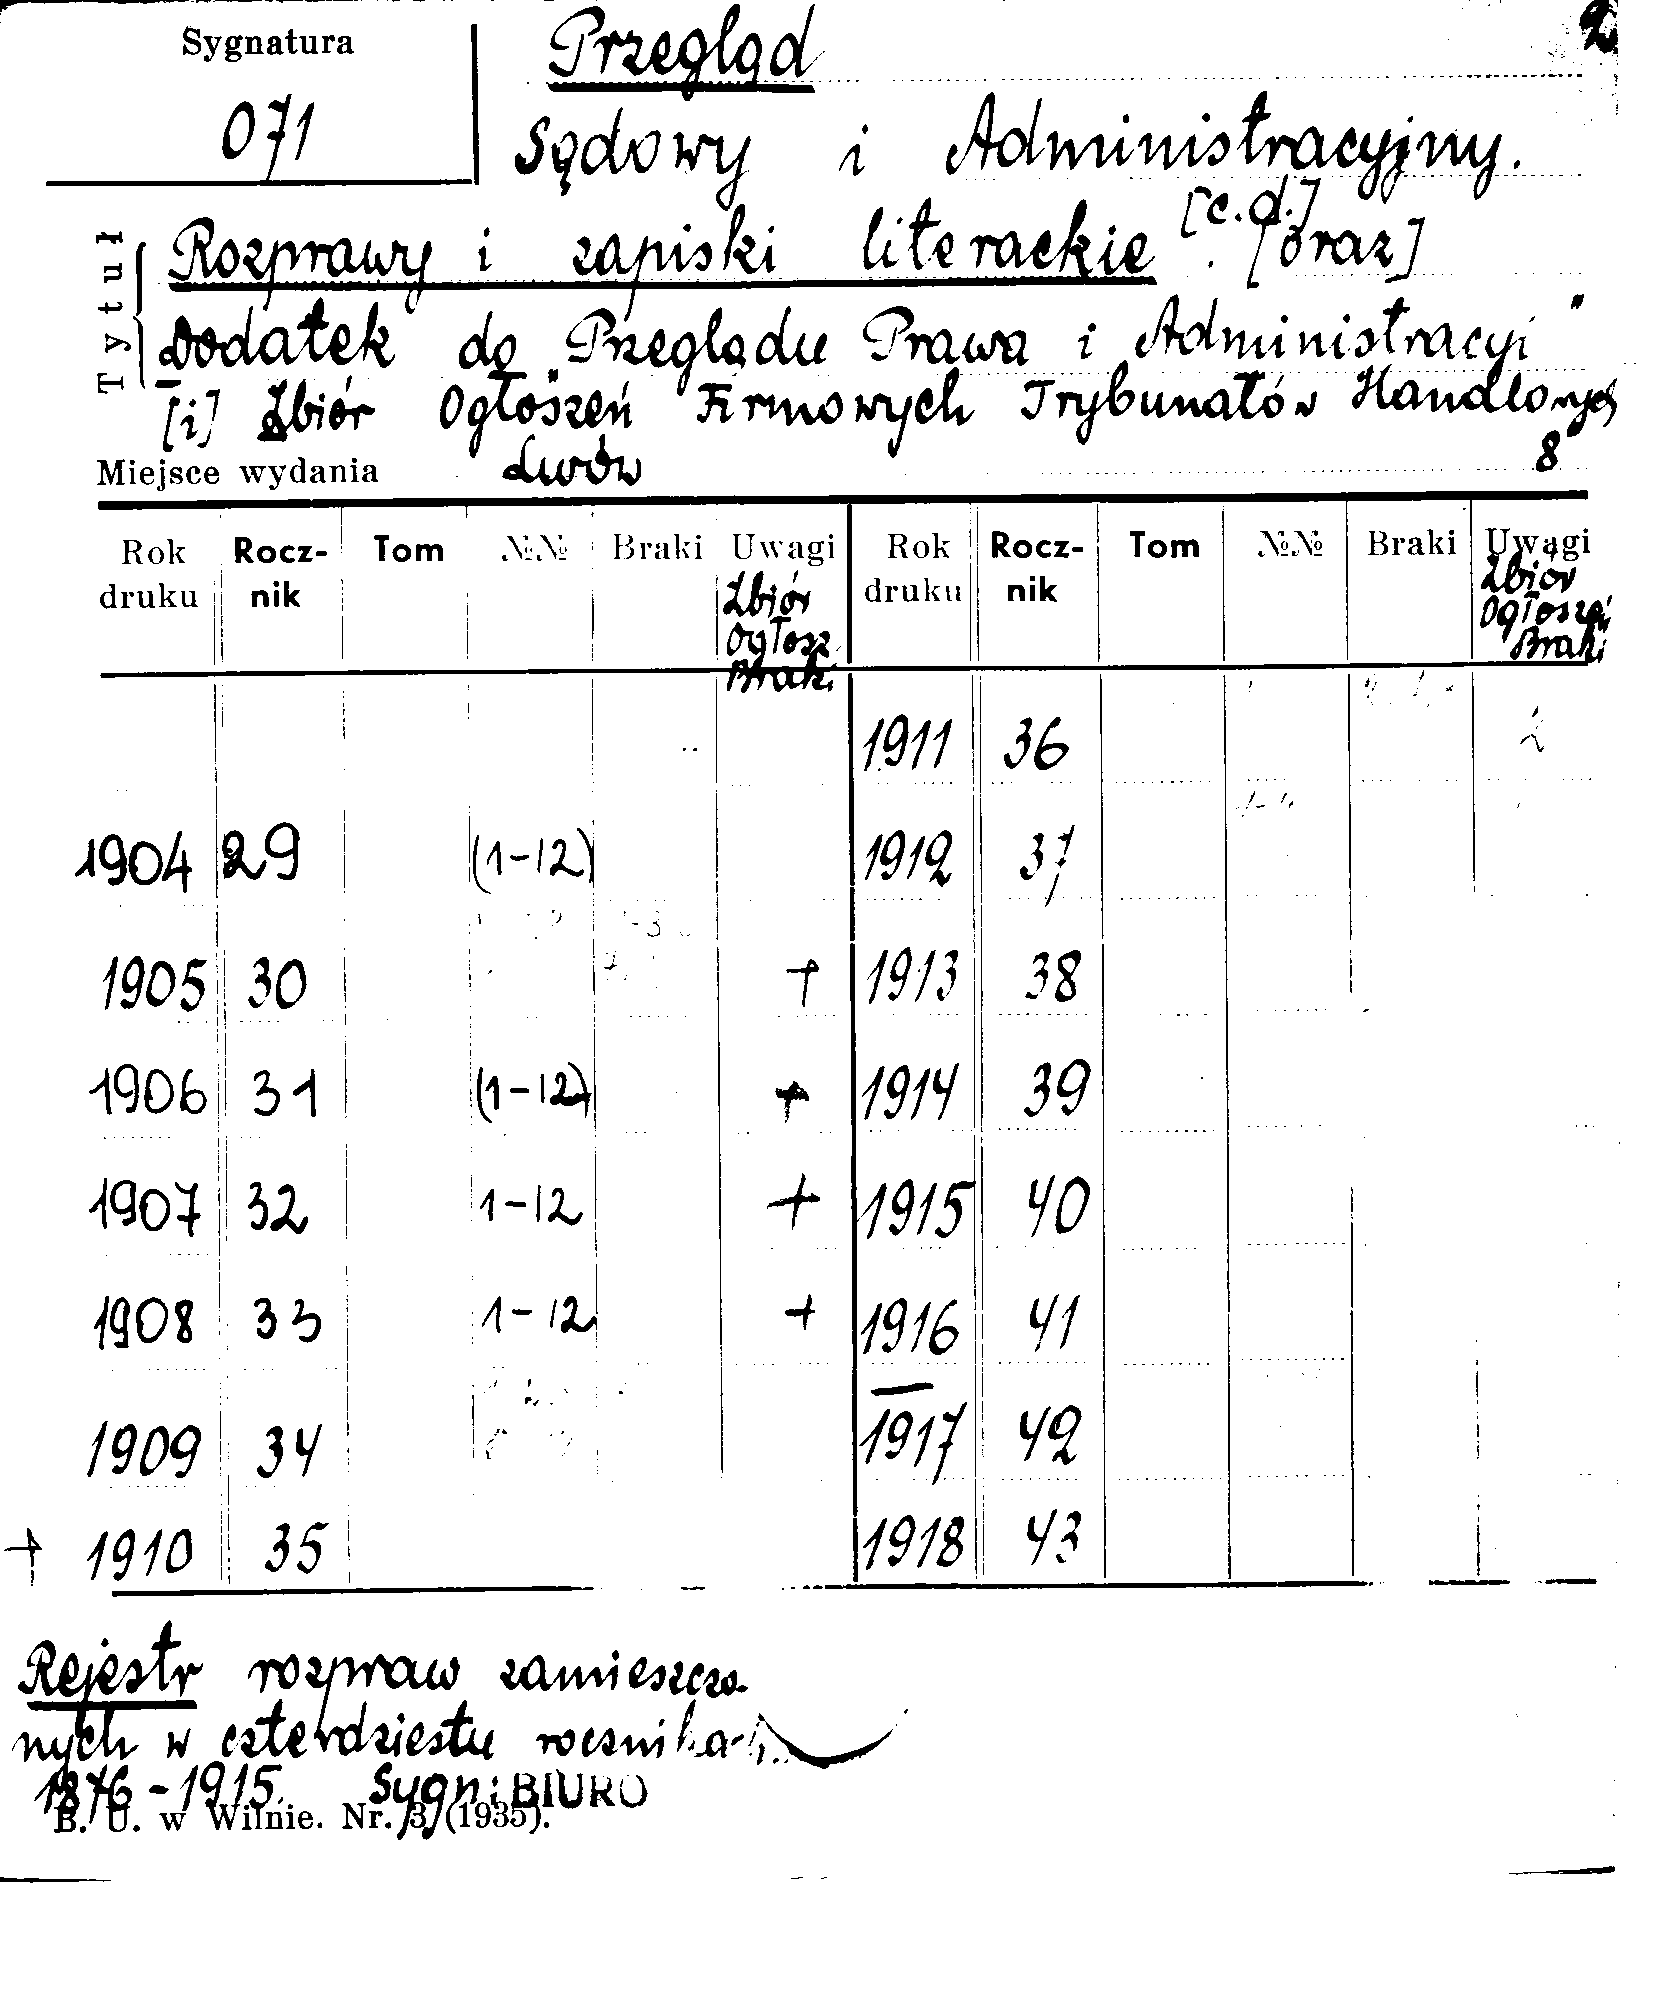 2
Sygnatura
071
Przegląd
Sądowy i Administracyjny.
[c.d.]
Tytuł
Rozprawy i zapiski literackie. [oraz]
Dodatek do „Przeglądu Prawa i Administracyi"
[i] Zbiór Ogłoszeń Firmowych Trybunałów Handlowych
Miejsce wydania Lwów 8
Rok druku Rocz-nik Tom №№ Braki Uwagi Rok druku Rocz-nik Tom №№ Braki Uwagi
Zbiór Ogłosz. Braki Zbiór Ogłoszeń Braki
1911 36
1904 29 (1-12) 1912 37
1905 30 + 1913 38
1906 31 (1-12) + 1914 39
1907 32 1-12 + 1915 40
1908 33 1-12 + 1916 41
1909 34 1917 42
+ 1910 35 1918 43
Rejestr rozpraw zamieszczo-
nych w czterdziestu rocznikach
1876-1915. Sygn: BIURO
B. U. w Wilnie. Nr. 3 (1935).